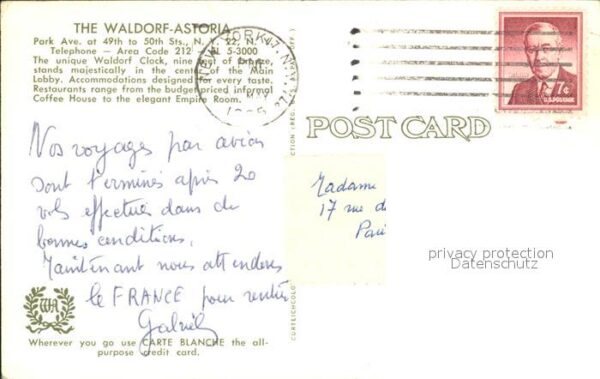 THE WALDORF-ASTORIA
Park Ave. at 49th to 50th Sts., N. Y. 22, N. Y.
Telephone — Area Code 212 - EL 5-3000
The unique Waldorf Clock, nine feet of bronze,
stands majestically in the center of the Main
Lobby. Accommodations designed for every taste.
Restaurants range from the budget-priced informal
Coffee House to the elegant Empire Room.
Nos voyages par avion
sont terminés après 20
vols effectués dans de
bonnes conditions.
Maintenant nous attendons
le FRANCE pour rentrer
Gabriel
WA
Wherever you go use CARTE BLANCHE the all-
purpose credit card.
CURTEICHCOLOR
NEW YORK
7¢
U.S. POSTAGE
POST CARD
Madame
17 rue d
Paris
privacy protection
Datenschutz